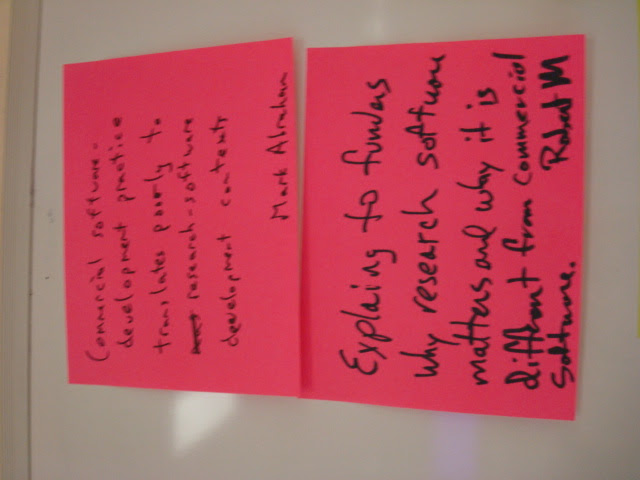 Commercial software-
development practice
translates poorly to
research-software
development contexts
Mark Abraham
Explaing to funders
why research software
matters and why it is
different from commercial
software. Robert M